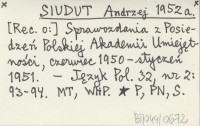 SIUDUT Andrzej 1952a.
[Rec. o:] Sprawozdania z Posie-
dzeń Polskiej Akademii Umiejęt-
ności, czerwiec 1950 – styczeń
1951. – Język Pol. 32, nr 2:
93-94. MT, WHP. * P, PN, S.